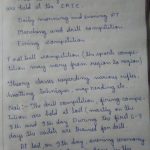 are held at the " CATC.
Daily morning and evening PT
Marching and drill competition
Firing competition
Foot ball competition (the sports compe-
tition may vary from region to region)
Theory classes regarding various rifles,
knotting technique, map reading etc.
Note:- The drill competition, firing compe-
tition are held at last (mainly on the
8th and 9th day. During the first 6-7
days the cadets are trained for drill
At last on 9th day, evening